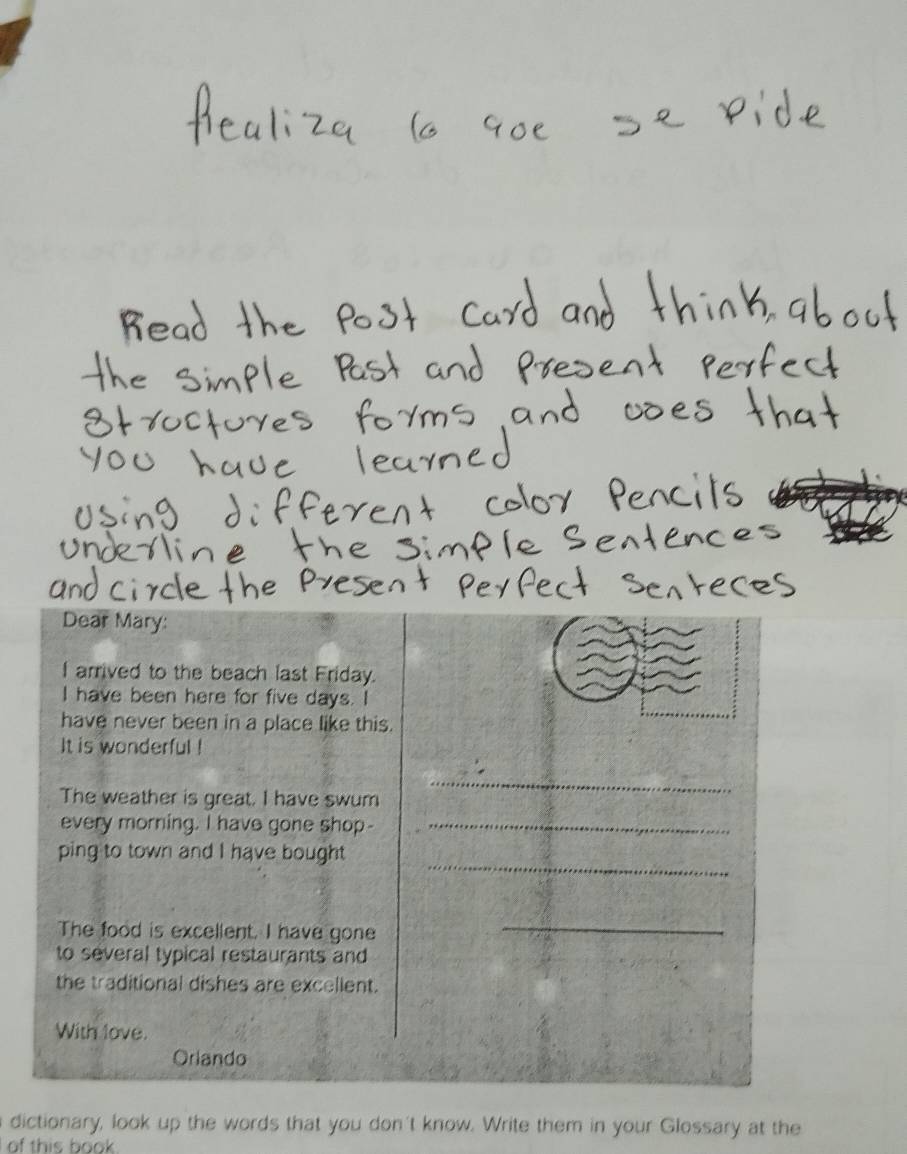 Realiza lo que se pide
Read the Post Card and think, about
the simple Past and Present Perfect
Structures forms, and uses that
you have learned
Using different color Pencils
underline the simple Sentences
and circle the Present Perfect Senteces
Dear Mary:
I arrived to the beach last Friday.
I have been here for five days. I
have never been in a place like this.
It is wonderful !
The weather is great. I have swum
every morning. I have gone shop-
ping to town and I have bought
The food is excellent. I have gone
to several typical restaurants and
the traditional dishes are excellent.
With love.
Orlando
dictionary, look up the words that you don't know. Write them in your Glossary at the
of this book.